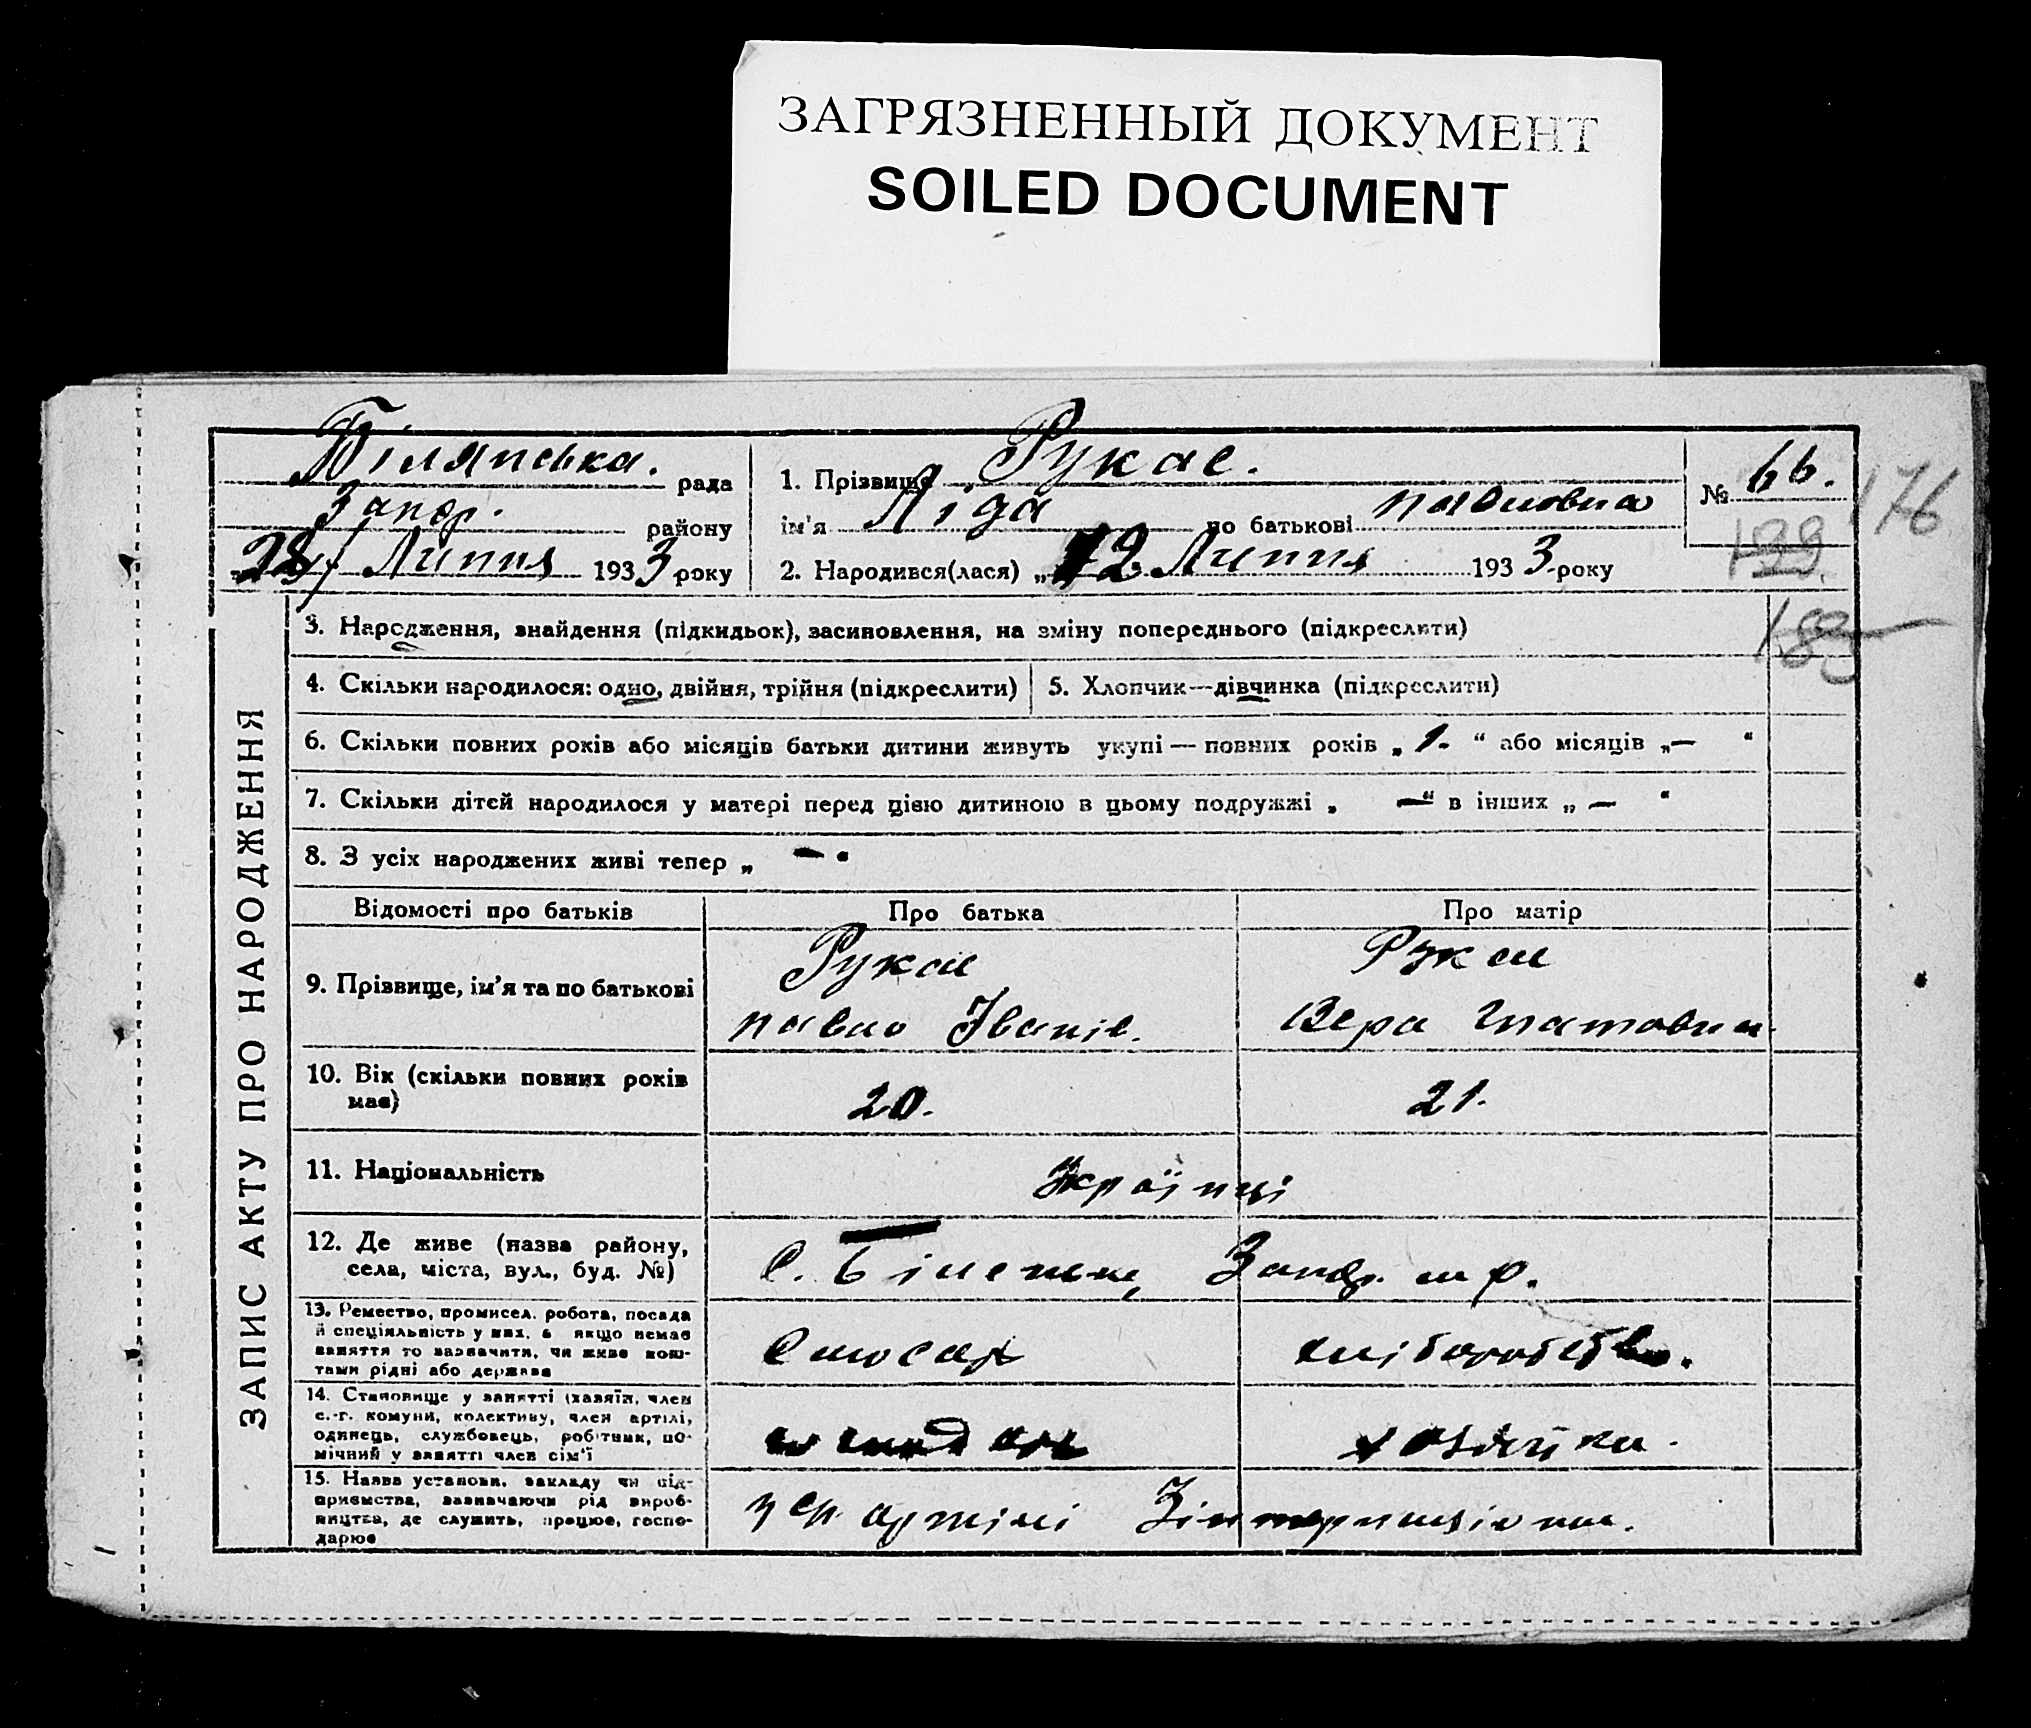 ЗАГРЯЗНЕННЫЙ ДОКУМЕНТ
SOILED DOCUMENT
Білянська. рада
Запор. району
28/ Липня 1933 року
1. Прізвище Рукас.
ім'я Ліда по батькові Павловна
2. Народився(лася) „12 Липня 1933 року
№ 66.
176
199
183
ЗАПИС АКТУ ПРО НАРОДЖЕННЯ
3. Народження, знайдення (підкидьок), засиновлення, на зміну попереднього (підкреслити)
4. Скільки народилося: одно, двійня, трійня (підкреслити)
5. Хлопчик—дівчинка (підкреслити)
6. Скільки повних років або місяців батьки дитини живуть укупі — повних років „ 1. “ або місяців „— “
7. Скільки дітей народилося у матері перед цією дитиною в цьому подружжі „ —“ в інших „ — “
8. З усіх народжених живі тепер „ — “
Відомості про батьків
Про батька
Про матір
9. Прізвище, ім'я та по батькові
Рукас
Павло Іванів.
Рукас
Вера
10. Вік (скільки повних років має)
20.
21.
11. Національність
Українці
12. Де живе (назва району,
села, міста, вул., буд. №)
С. Запор. р.
13. Ремество, промисел. робота, посада
й спеціяльність у них, а якщо немає
заняття то зазначити, чи живе кош-
тами рідні або держава
Слюсар
хліборобство.
14. Становище у занятті (хазяїн, член
с.-г. комуни, колективу, член артілі,
одинець, службовець, робітник, по-
мічний у занятті член сім'ї
хозяйка.
15. Назва установи, закладу чи під-
приємства, зазначаючи рід вироб-
ництва, де служить, працює, госпо-
дарює
у артілі